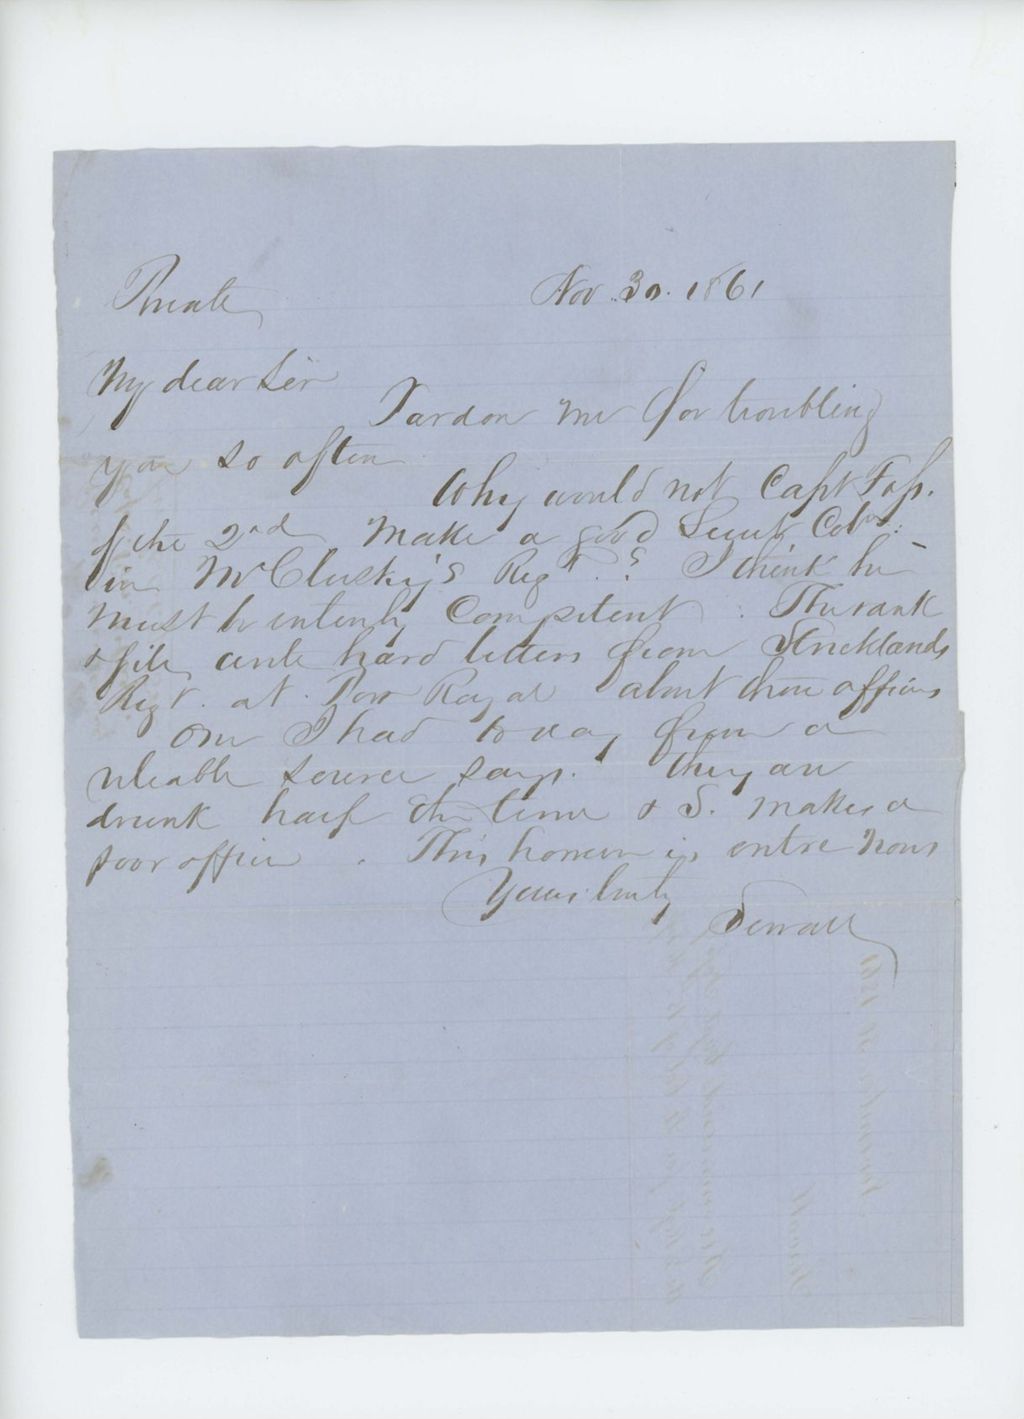 Private Nov. 30. 1861
My dear Sir
Pardon me for troubling
you so often
Why would not Capt
of the 2nd make a good Lieut Col
in McCluskey's Regt. ? I think he
must be entirely competent. The rank
& file write hard letters from Stricklands
Regt. at Port Royal about their officers
One I had to day from a
reliable source says. they are
drunk half the time & S. makes a
poor officer. This however is entre nous
Yours truly
Sewall